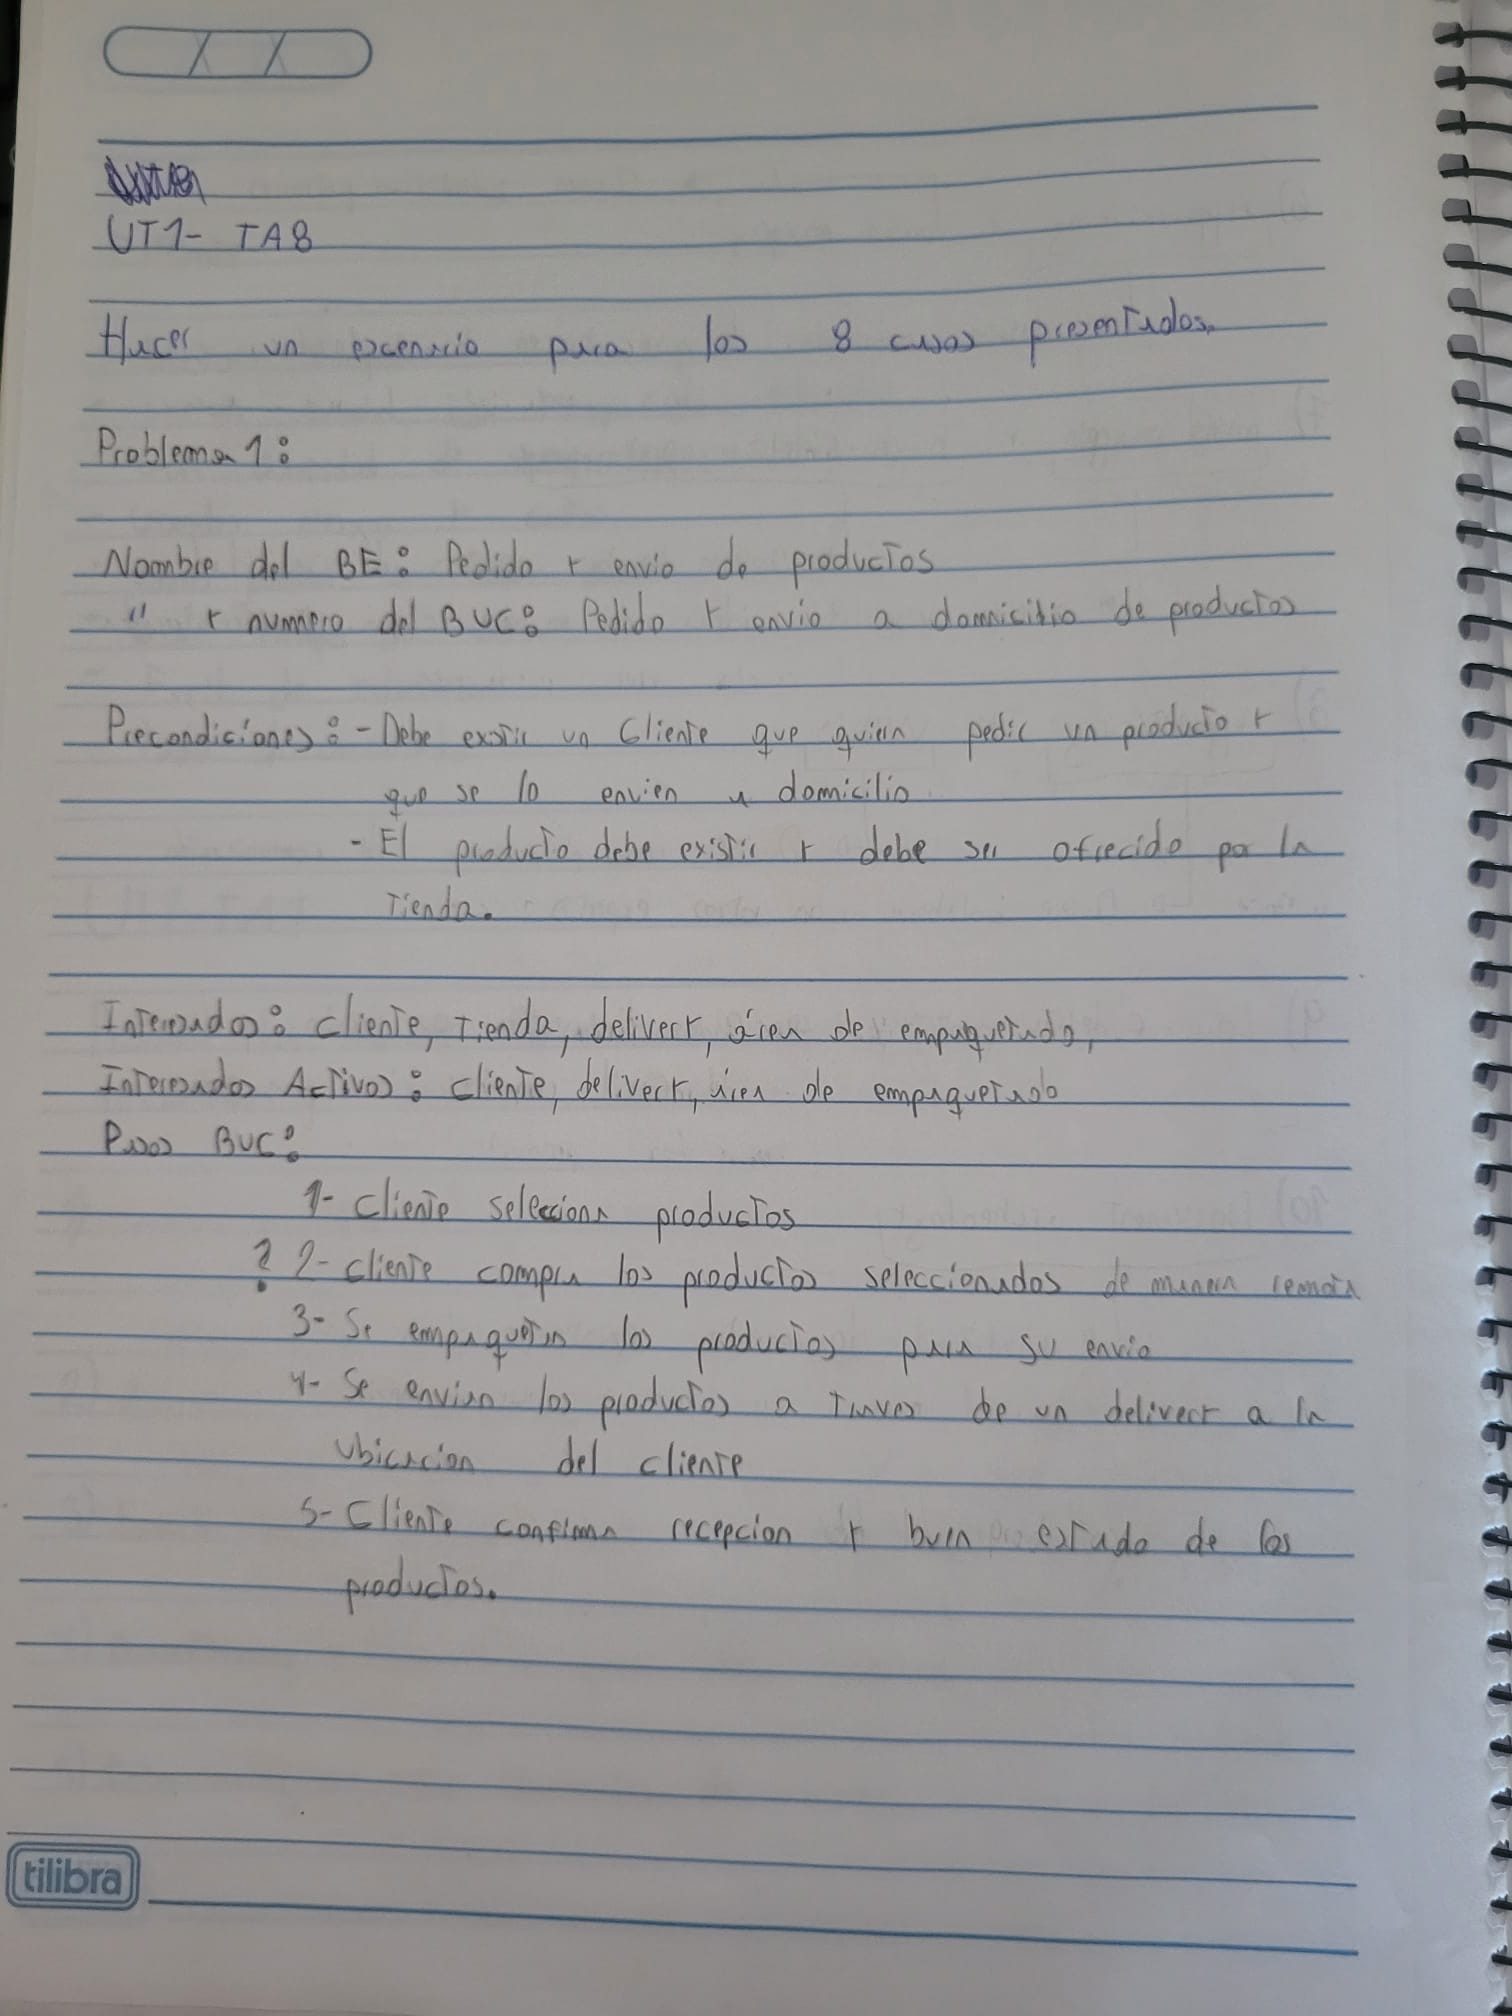 UT1- TA8
Hacer un escenario para los 8 casos presentados.
Problema 1:
Nombre del BE: Pedido y envio de productos
" y numero del BUC: Pedido y envio a domicilio de productos
Precondiciones: - Debe existir un Cliente que quiera pedir un producto y
que se lo envien a domicilio
- El producto debe existir y debe ser ofrecido por la
Tienda.
Interesados: cliente, Tienda, delivery, área de empaquetado,
Interesados Activos: cliente, delivery, área de empaquetado
Pasos BUC:
1- Cliente selecciona productos
? 2- cliente compra los productos seleccionados de manera remota
3- Se empaquetan los productos para su envio
4- Se envian los productos a traves de un delivery a la
ubicacion del cliente
5- Cliente confirma recepcion y buen estado de los
productos.
tilibra